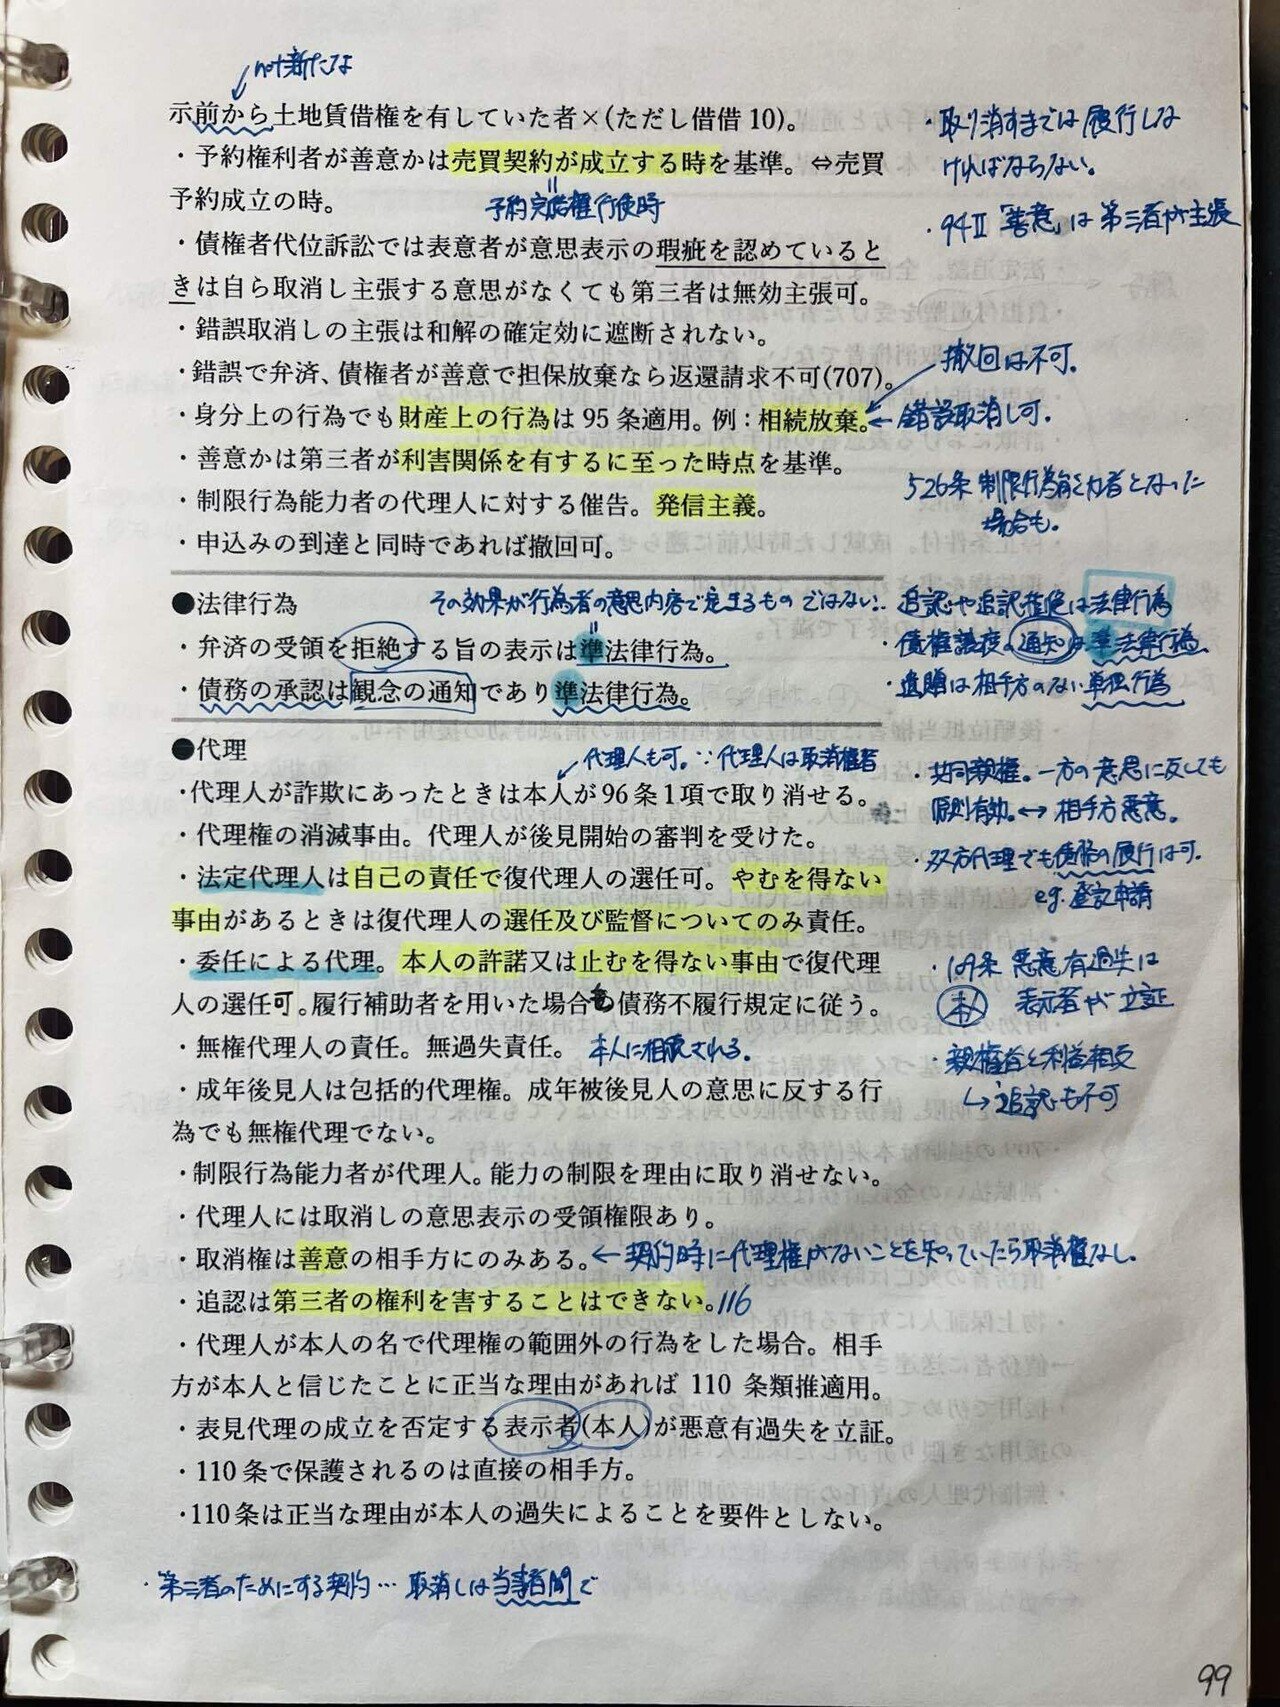 not新たな
示前から土地賃借権を有していた者×(ただし借借10)。
・予約権利者が善意かは売買契約が成立する時を基準。⇔売買
予約成立の時。
予約完結権行使時
・債権者代位訴訟では表意者が意思表示の瑕疵を認めていると
きは自ら取消し主張する意思がなくても第三者は無効主張可。
・錯誤取消しの主張は和解の確定効に遮断されない。
・錯誤で弁済、債権者が善意で担保放棄なら返還請求不可(707)。
・身分上の行為でも財産上の行為は95条適用。例：相続放棄。
・善意かは第三者が利害関係を有するに至った時点を基準。
・制限行為能力者の代理人に対する催告。発信主義。
・申込みの到達と同時であれば撤回可。
・取り消すまでは履行しな
ければならない。
・94Ⅱ「善意」は第三者が主張
撤回は不可。
←錯誤取消し可.
526条 制限行為能力者となった
場合も.
●法律行為
その効果が行為者の意思内容で定まるものではない
・弁済の受領を拒絶する旨の表示は準法律行為。
・債務の承認は観念の通知であり準法律行為。
・追認や追認拒絶は法律行為
・債権譲渡の通知は準法律行為
・遺贈は相手方のない単独行為
●代理
代理人も可。∵代理人は取消権者
・代理人が詐欺にあったときは本人が96条1項で取り消せる。
・代理権の消滅事由。代理人が後見開始の審判を受けた。
・法定代理人は自己の責任で復代理人の選任可。やむを得ない
事由があるときは復代理人の選任及び監督についてのみ責任。
・委任による代理。本人の許諾又は止むを得ない事由で復代理
人の選任可。履行補助者を用いた場合も債務不履行規定に従う。
・無権代理人の責任。無過失責任。 本人に相続される.
・成年後見人は包括的代理権。成年被後見人の意思に反する行
為でも無権代理でない。
・制限行為能力者が代理人。能力の制限を理由に取り消せない。
・代理人には取消しの意思表示の受領権限あり。
・取消権は善意の相手方にのみある。←契約時に代理権がないことを知っていたら取消権なし.
・追認は第三者の権利を害することはできない。116
・代理人が本人の名で代理権の範囲外の行為をした場合。相手
方が本人と信じたことに正当な理由があれば 110 条類推適用。
・表見代理の成立を否定する表示者(本人)が悪意有過失を立証。
・110条で保護されるのは直接の相手方。
・110条は正当な理由が本人の過失によることを要件としない。
・共同親権。一方の意思に反しても
原則有効。↔相手方悪意。
・双方代理でも債務の履行は可.
e.g. 登記申請
・109条 悪意有過失は
本人 表示者が立証
・親権者と利益相反
↳追認も不可
・第三者のためにする契約…取消しは当事者間で
99